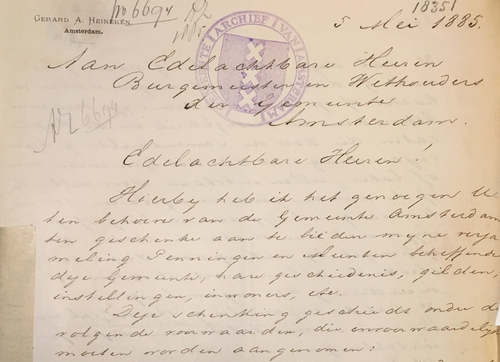 GERARD A. HEINEKEN,
Amsterdam.
No 6694
18351
5 Mei 1885.
GEMEENTE ARCHIEF VAN AMSTERDAM
Aan Edelachtbare Heeren
Burgemeester en Wethouders
der Gemeente
Amsterdam.
No 6694
Edelachtbare Heeren!
Hierby heb ik het genoegen U
ten behoeve van de Gemeente Amsterdam
ten geschenke aan te bieden myne verza
meling Penningen en Munten betreffende
deze Gemeente, hare geschiedenis, gilden,
instellingen, inwoners, etc.
Deze schenking geschiedt onder de
volgende voorwaarden, die onvoorwaardelyk
moeten worden aangenomen: